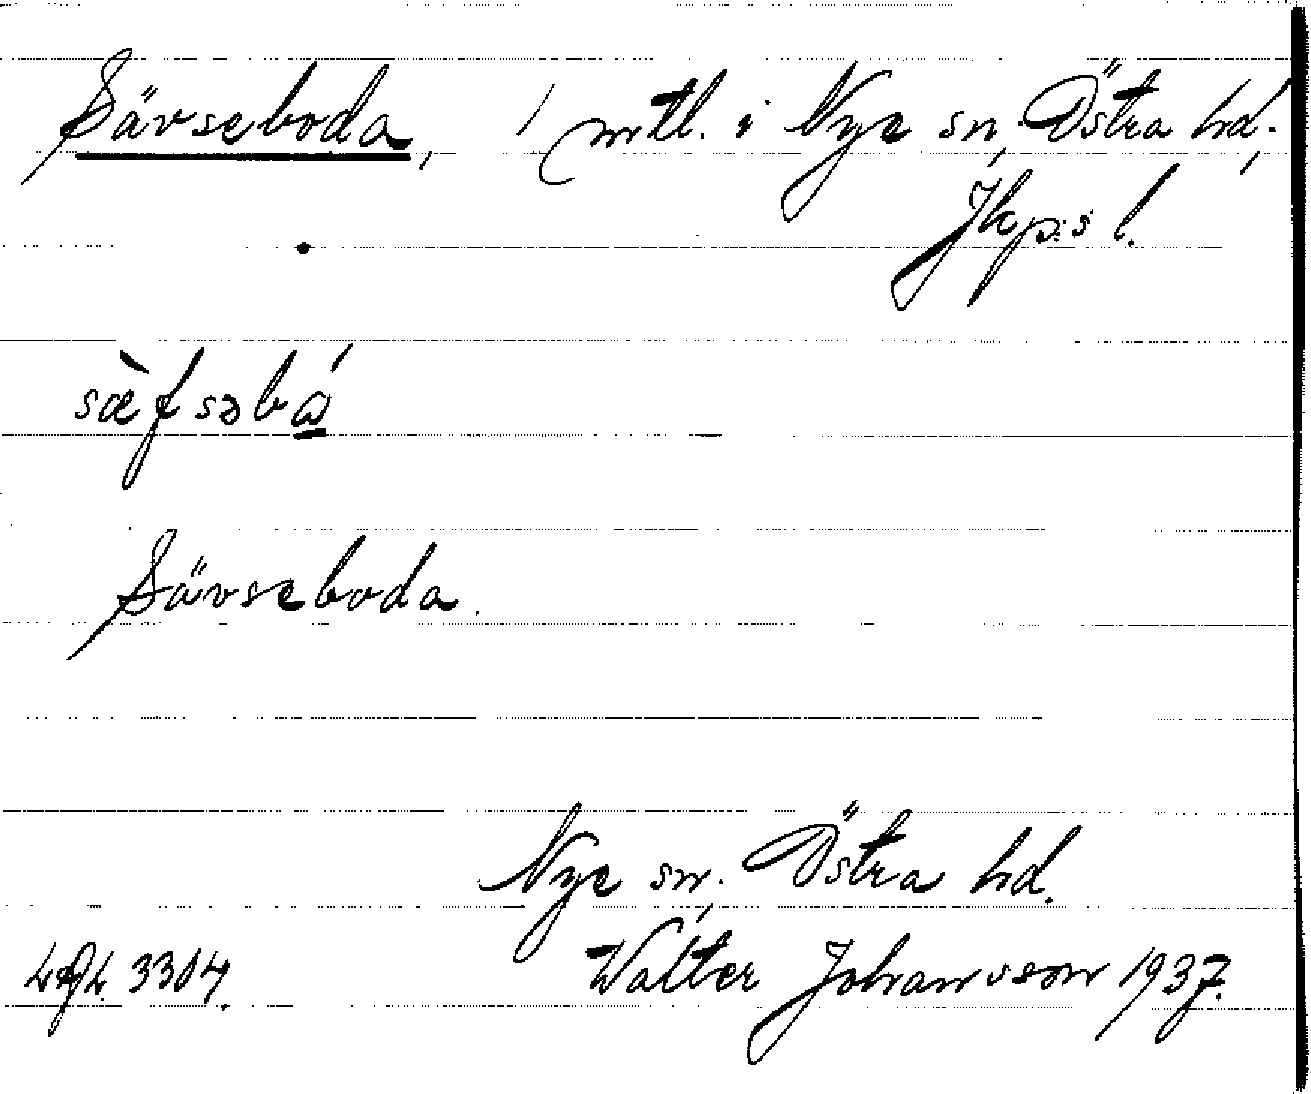 Sävseboda, 1 mtl. i Nye sn, Östra hd,
Jkp:s l.
sæ̀fsəbá̲
Sävseboda.
Nye sn, Östra hd.
3304. Walter Johansson 1937.